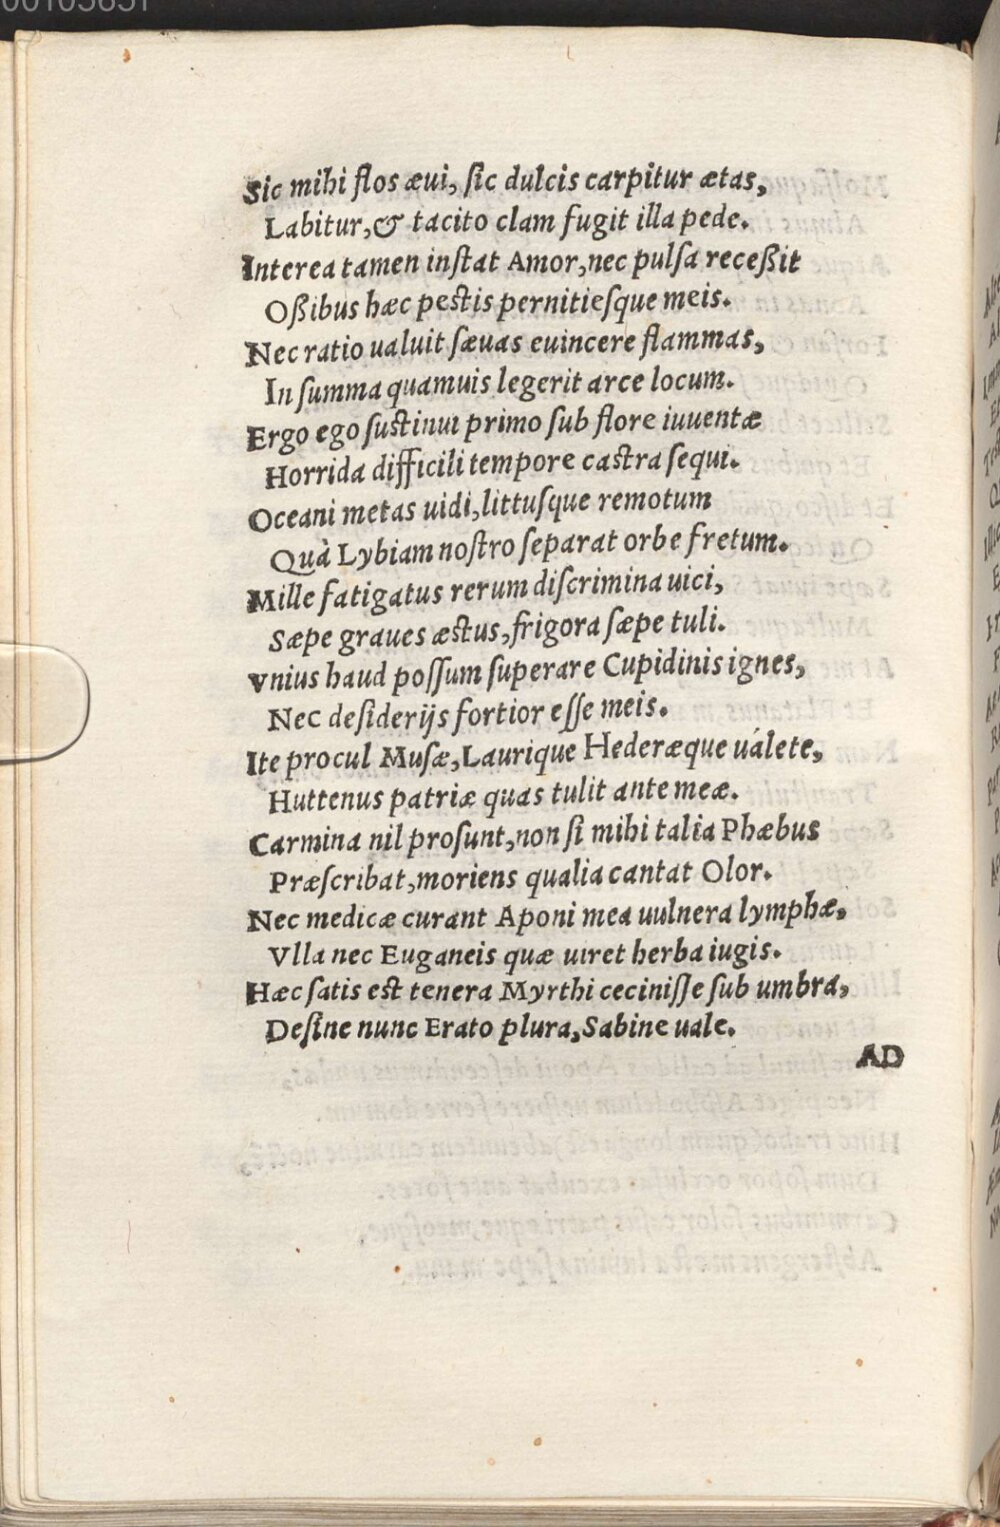 Sic mihi flos æui, ſic dulcis carpitur ætas,
Labitur,& tacito clam fugit illa pede.
Interea tamen inſtat Amor,nec pulſa receßit
Oßibus hæc peſtis pernitieſque meis.
Nec ratio ualuit ſæuas euincere flammas,
In ſumma quamuis legerit arce locum.
Ergo ego ſuſtinui primo ſub flore iuuentæ
Horrida difficili tempore caſtra ſequi.
Oceani metas uidi,littuſque remotum
Quà Lybiam noſtro ſeparat orbe fretum.
Mille fatigatus rerum diſcrimina uici,
Sæpe graues æſtus,frigora ſæpe tuli.
Vnius haud poſſum ſuperare Cupidinis ignes,
Nec deſiderijs fortior eſſe meis.
Ite procul Muſæ,Laurique Hederæque uálete,
Huttenus patriæ quas tulit ante meæ.
Carmina nil proſunt,non ſi mihi talia Phæbus
Præſcribat,moriens qualia cantat Olor.
Nec medicæ curant Aponi mea uulnera lymphæ,
Vlla nec Euganeis quæ uiret herba iugis.
Hæc ſatis eſt tenera Myrthi ceciniſſe ſub umbra,
Deſine nunc Erato plura,Sabine uale.
AD